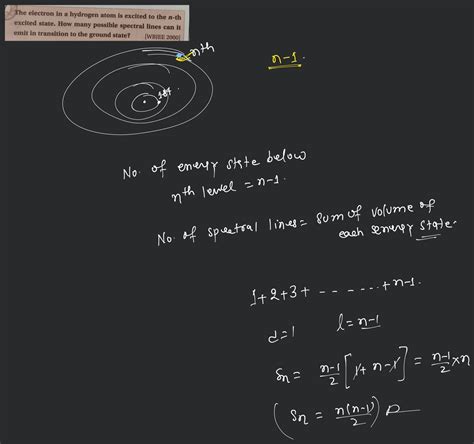 The electron in a hydrogen atom is excited to the n-th
excited state. How many possible spectral lines can it
emit in transition to the ground state? [WBJEE 2000]
nth
n-1.
1st
No. of energy state below
nth level = n-1.
No. of spectral lines = Sum of volume of
each energy state.
1+2+3+ - - - - - - . + n-1.
d=1 l = n-1
Sn = n-1/2 [1 + n-1] = n-1/2 × n
(Sn = n(n-1)/2)